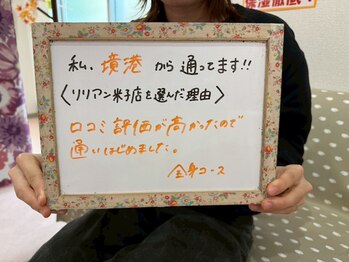 保湿徹底!
私、境港から通ってます!!
〈リリアン米子店を選んだ理由〉
口コミ評価が高かったので
通いはじめました。
全身コース